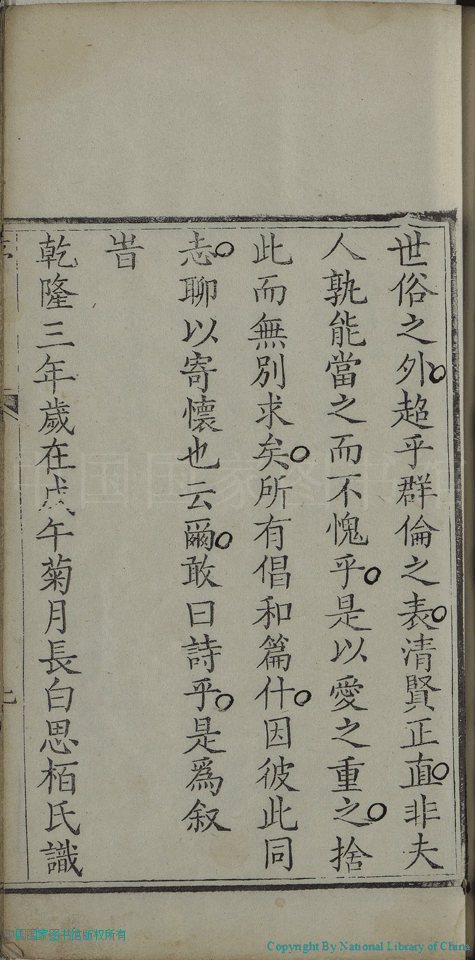 世俗之外。超乎群倫之表。清賢正直。非夫
人孰能當之而不愧乎。是以愛之重之。捨
此而無別求矣。所有倡和篇什。因彼此同
志。聊以寄懷也云爾。敢曰詩乎。是爲叙
旹
乾隆三年歲在戊午菊月長白思栢氏識
中国国家图书馆版权所有
Copyright By National Library of China